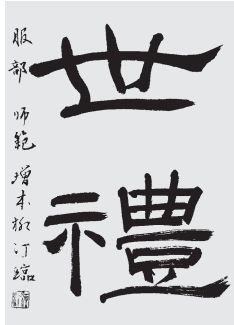 世禮
服部 師範 増本柳汀臨